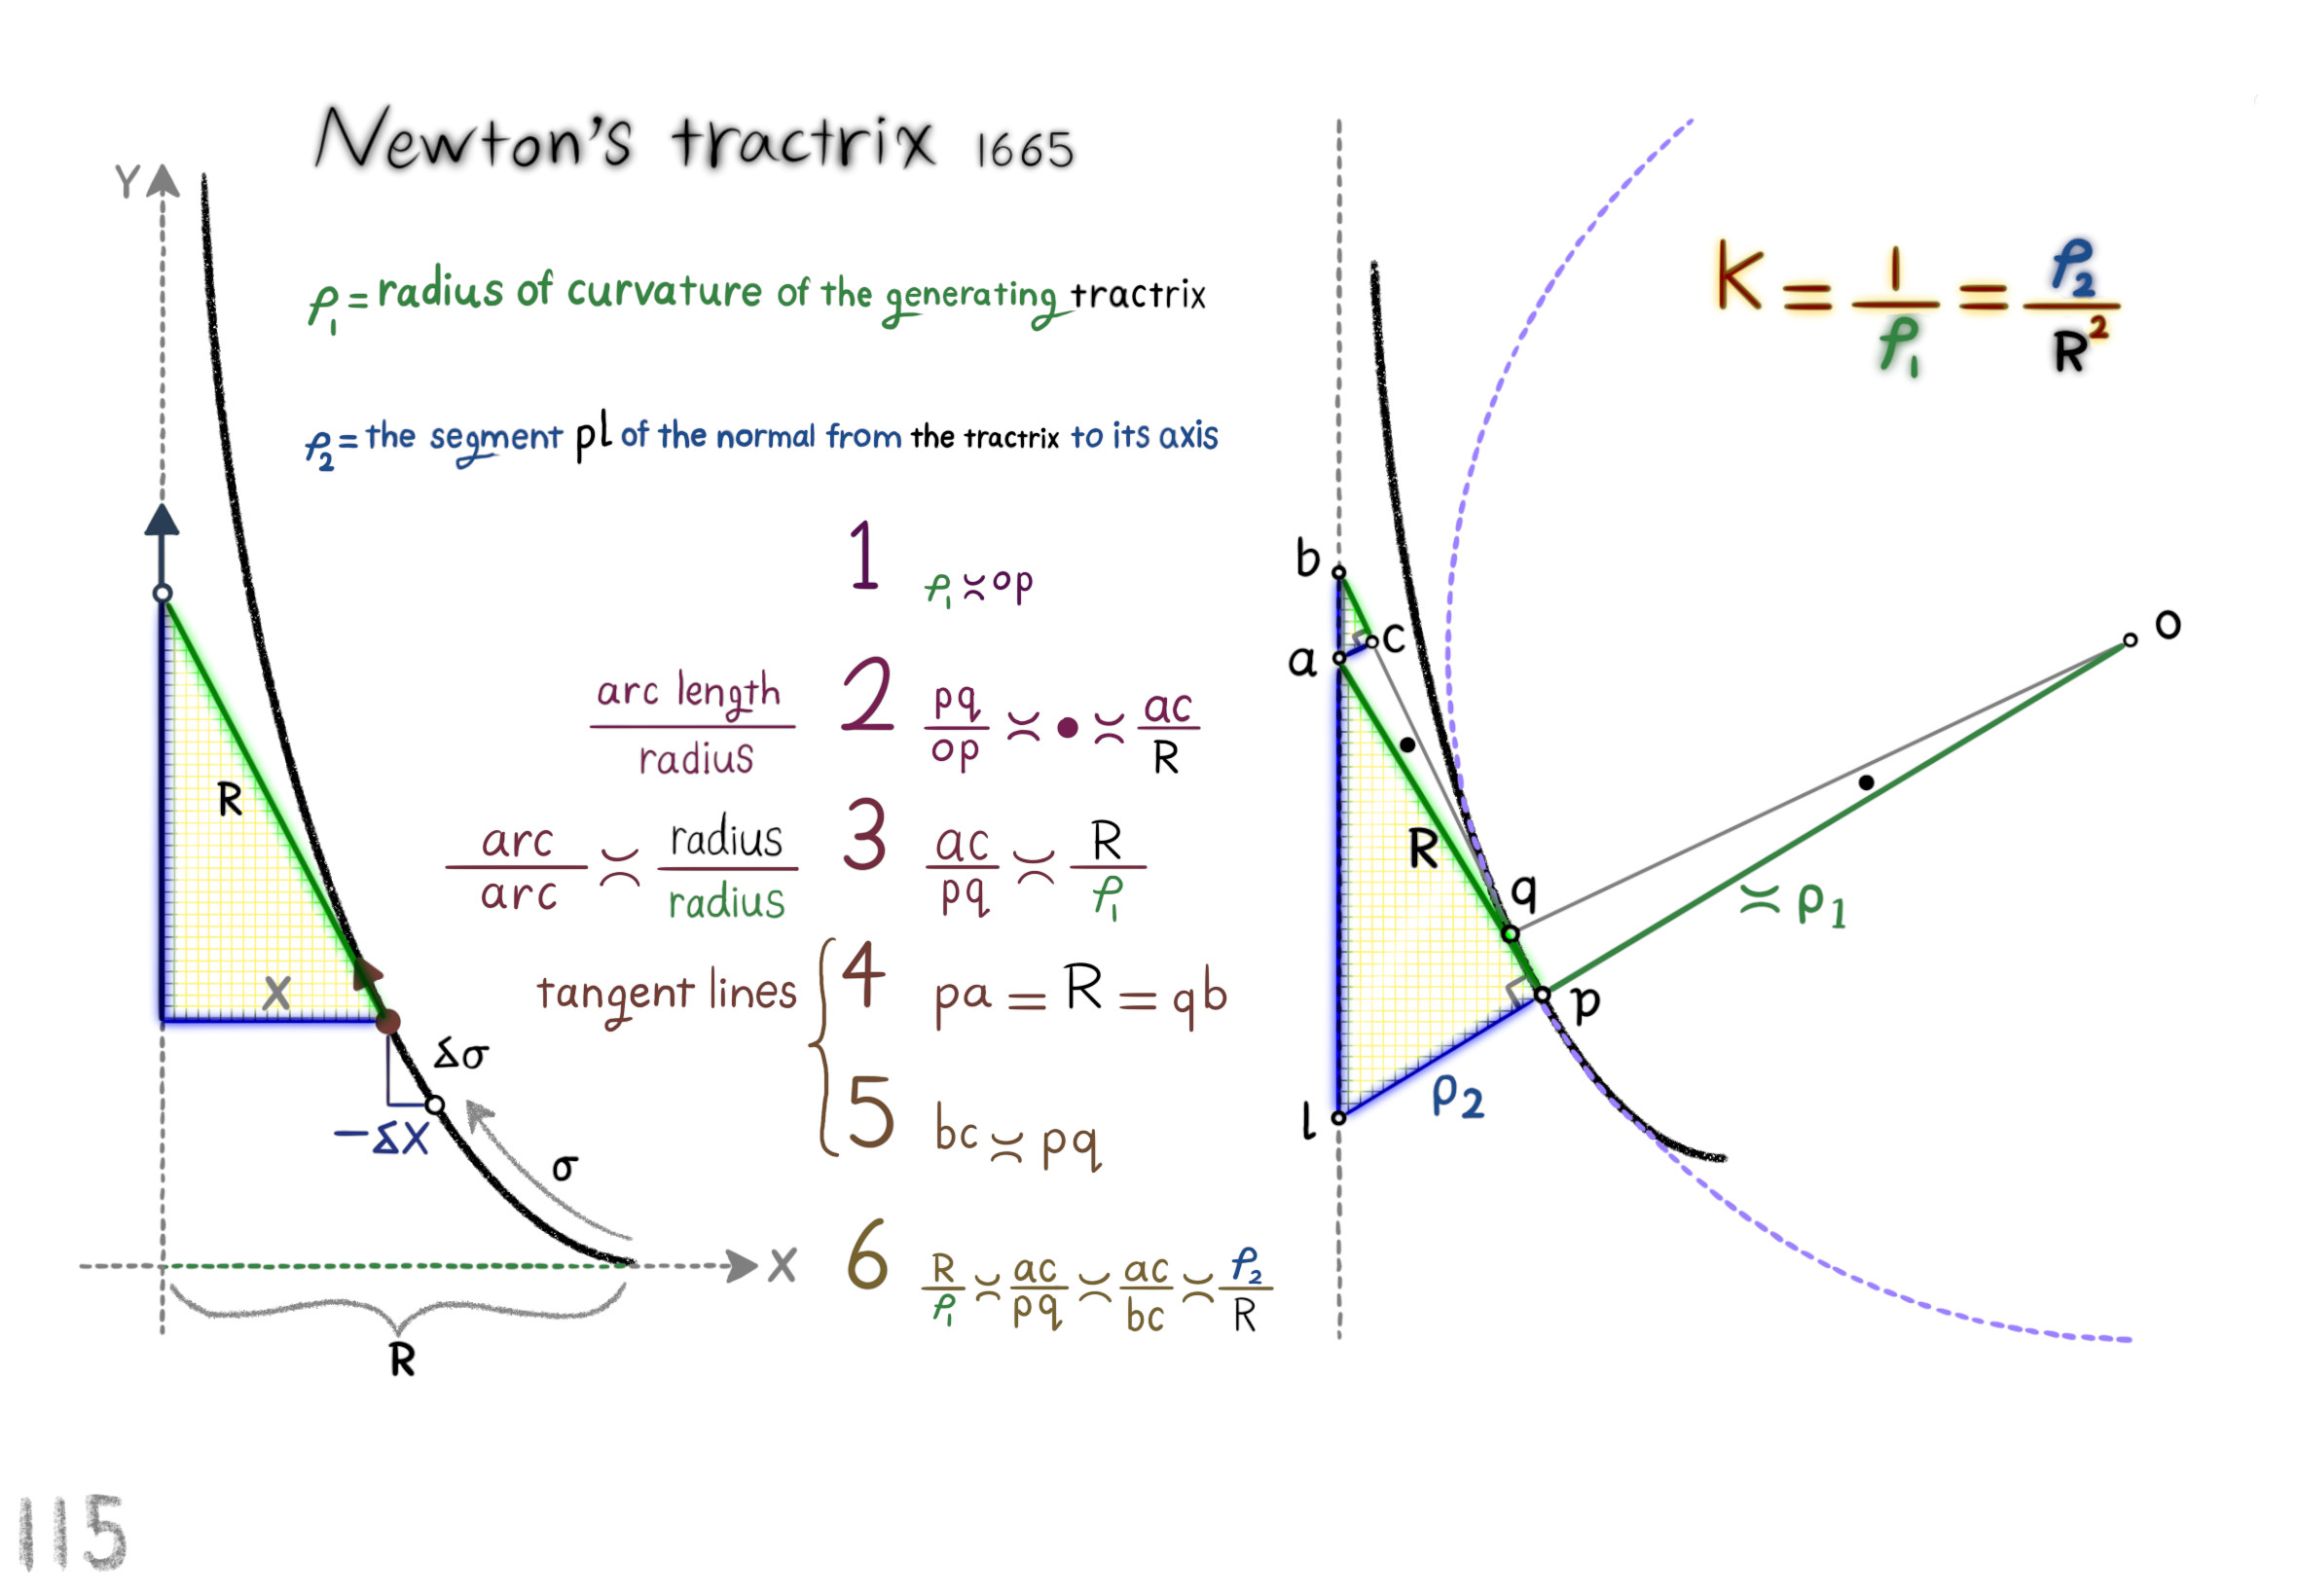 Newton's tractrix 1665
Y
ρ₁ = radius of curvature of the generating tractrix
ρ₂ = the segment pl of the normal from the tractrix to its axis
K = 1/ρ₁ = ρ₂/R²
1 ρ₁ ≍ op
arc length / radius 2 pq/op ≍ • ≍ ac/R
arc/arc ≍ radius/radius 3 ac/pq ≍ R/ρ₁
tangent lines { 4 pa = R = qb
5 bc ≍ pq
6 R/ρ₁ ≍ ac/pq ≍ ac/bc ≍ ρ₂/R
R
X
δσ
-δX
σ
X
R
b
c
a
o
R
q
≍ ρ₁
p
ρ₂
l
115